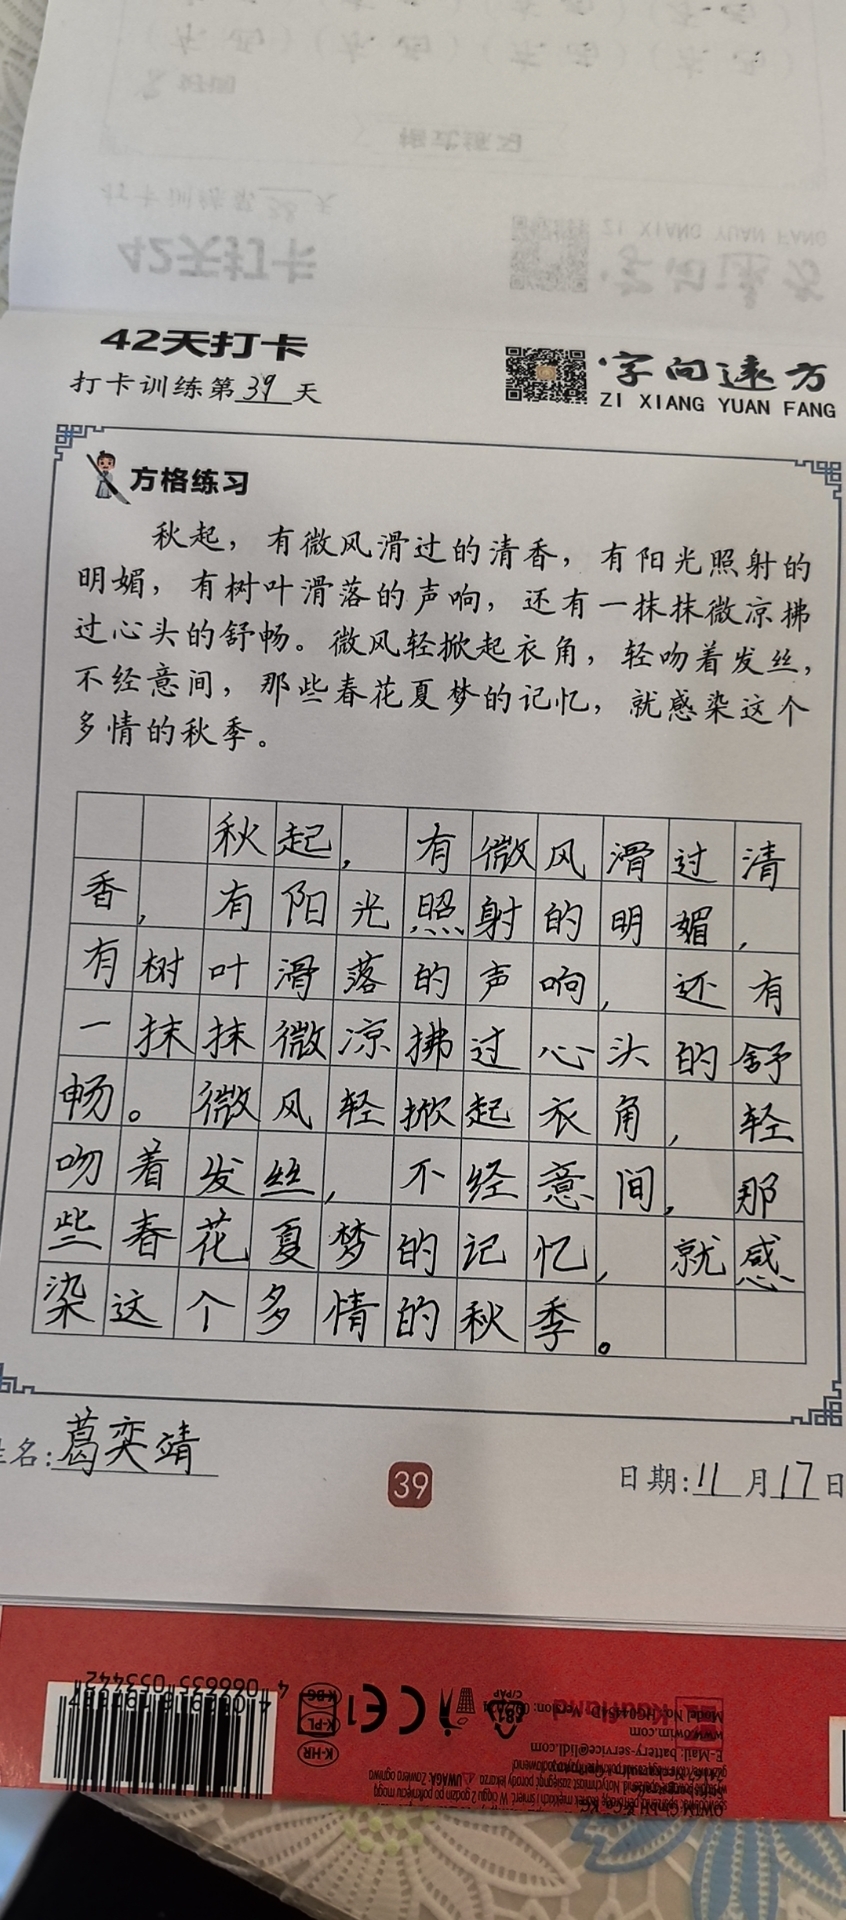 42天打卡
打卡训练第39天
字向远方
ZI XIANG YUAN FANG
方格练习
秋起，有微风滑过的清香，有阳光照射的
明媚，有树叶滑落的声响，还有一抹抹微凉拂
过心头的舒畅。微风轻掀起衣角，轻吻着发丝，
不经意间，那些春花夏梦的记忆，就感染这个
多情的秋季。
秋起，有微风滑过清
香，有阳光照射的明媚，
有树叶滑落的声响，还有
一抹抹微凉拂过心头的舒
畅。微风轻掀起衣角，轻
吻着发丝，不经意间，那
些春花夏梦的记忆，就感
染这个多情的秋季。
姓名:葛奕靖
39
日期:11月17日